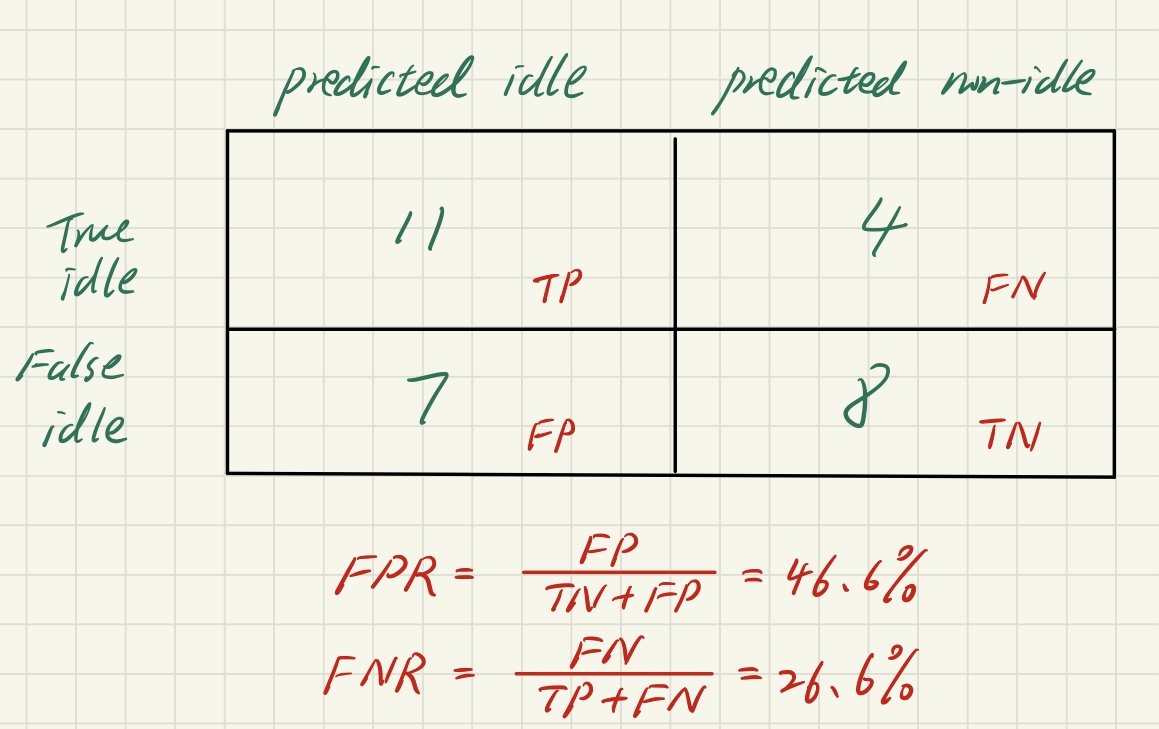 predicted idle predicted non-idle
True idle 11 TP 4 FN
False idle 7 FP 8 TN
FPR = FP / TN + FP = 46.6%
FNR = FN / TP + FN = 26.6%